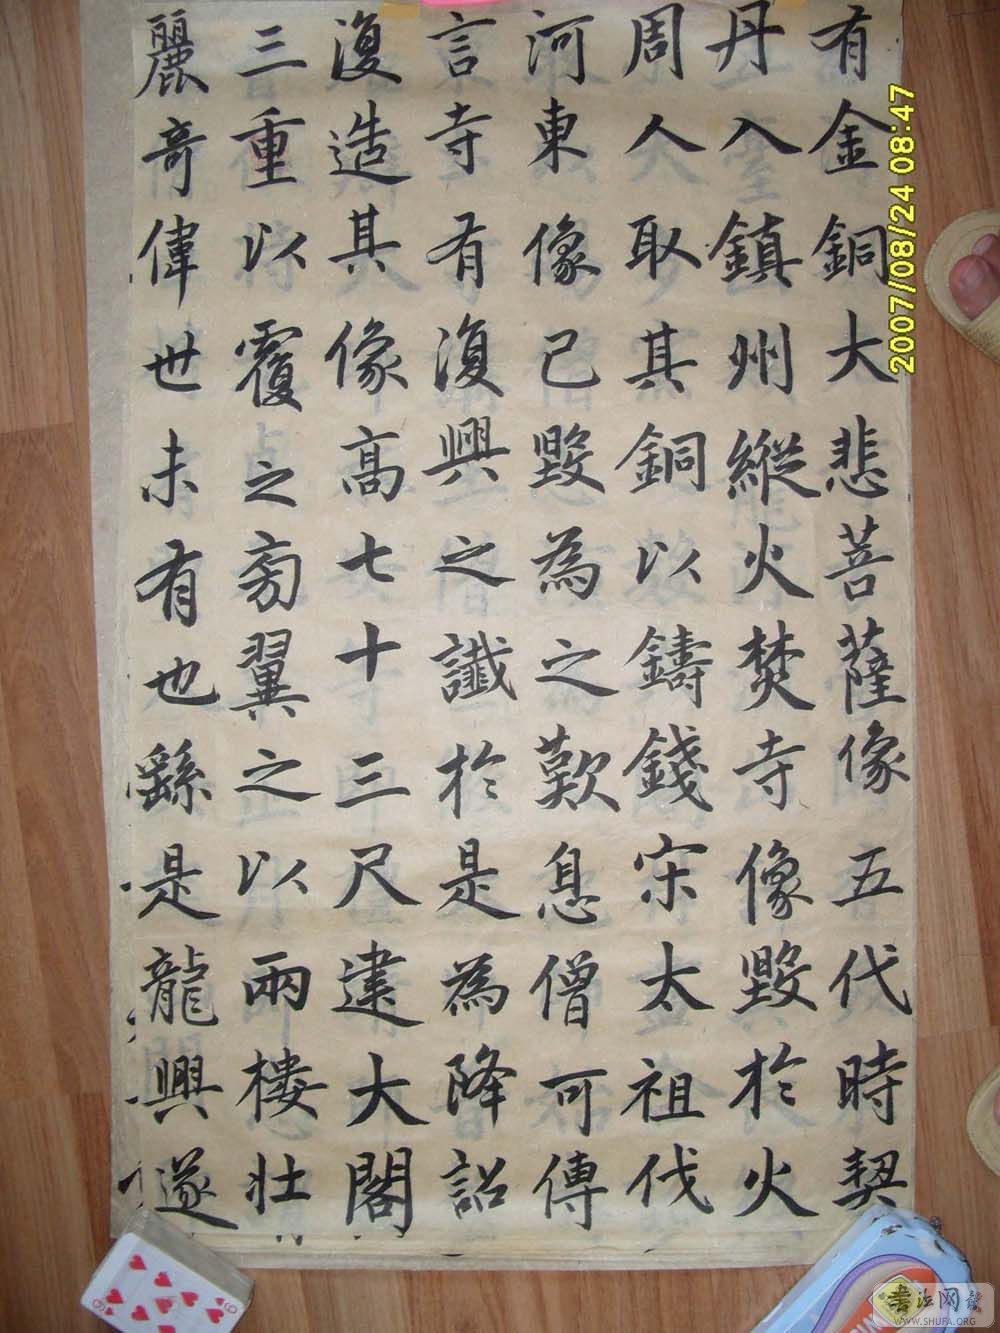 有金銅大悲菩薩像五代時契
丹入鎮州縱火焚寺像毀於火
周人取其銅以鑄錢宋太祖伐
河東像已毀為之歎息僧可傳
言寺有復興之讖於是為降詔
復造其像高七十三尺建大閣
三重以覆之旁翼之以兩樓壯
麗奇偉世未有也繇是龍興遂
2007/08/24 08:47
书法网
WWW.SHUFA.ORG